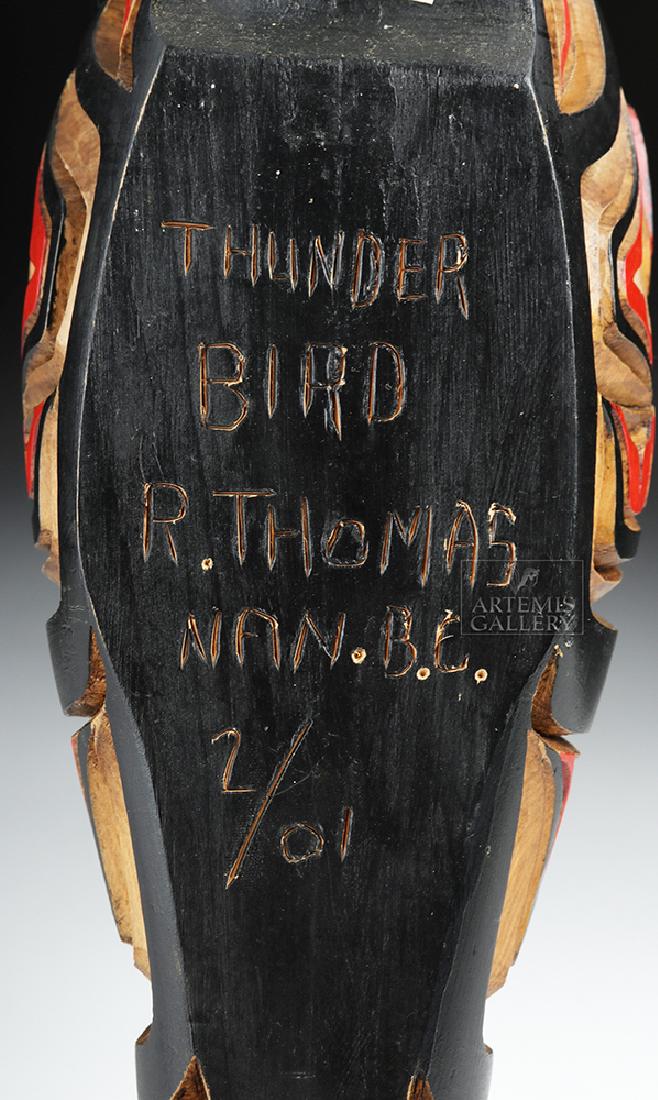 THUNDER
BIRD
R. THOMAS
NAN. B.C.
2/01
ARTEMIS
GALLERY